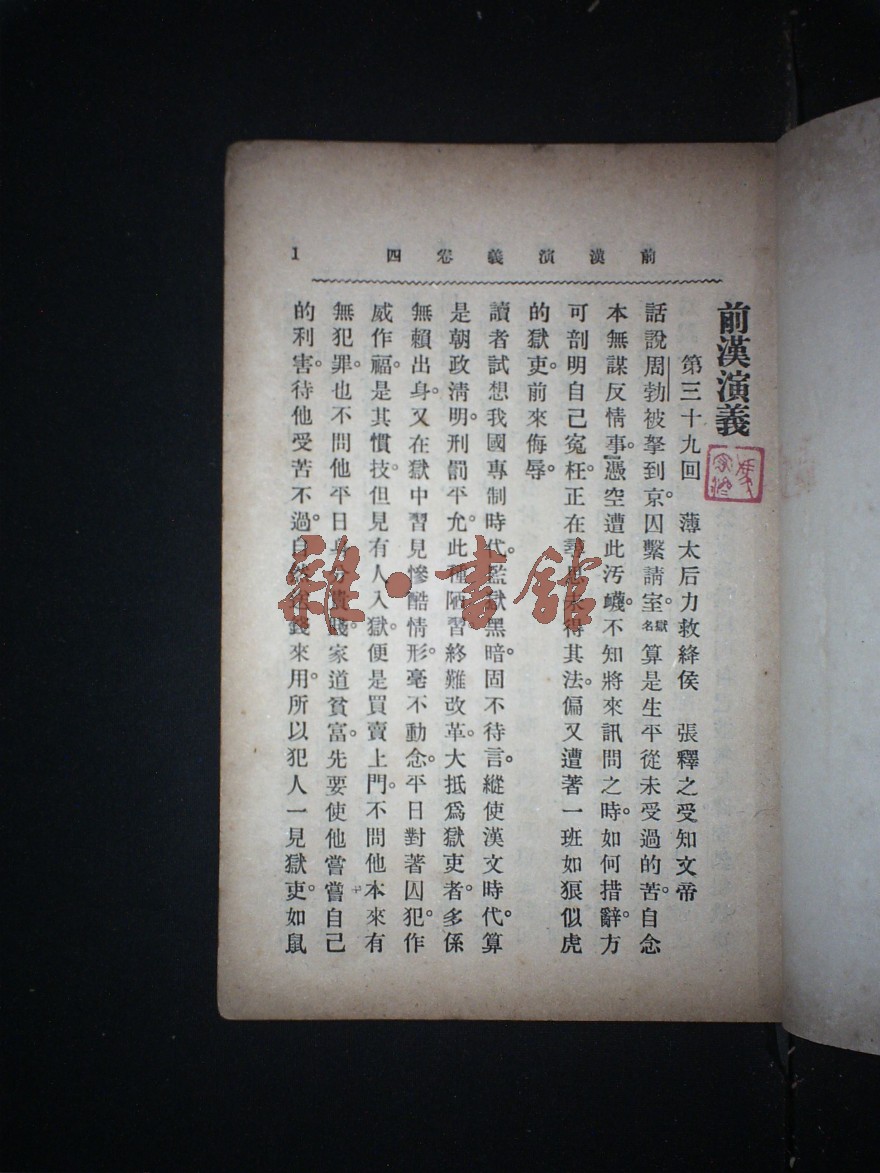 前漢演義卷四 1
前漢演義
第三十九回 薄太后力救絳侯 張釋之受知文帝
話說周勃被拏到京。囚繫請室。獄名算是生平從未受過的苦。自念
本無謀反情事。憑空遭此汚衊。不知將來訊問之時。如何措辭。方
可剖明自己冤枉。正在尋思未得其法。偏又遭著一班如狠似虎
的獄吏。前來侮辱。
讀者試想我國專制時代。監獄黑暗。固不待言。縱使漢文時代。算
是朝政淸明。刑罰平允。此種陋習終難改革。大抵爲獄吏者。多係
無賴出身。又在獄中習見慘酷情形。毫不動念。平日對著囚犯。作
威作福。是其慣技。但見有人入獄。便是買賣上門。不問他本來有
無犯罪。也不問他平日身分貴賤。家道貧富。先要使他嘗嘗自己
的利害。待他受苦不過。自然送錢來用。所以犯人一見獄吏。如鼠
雜·書館